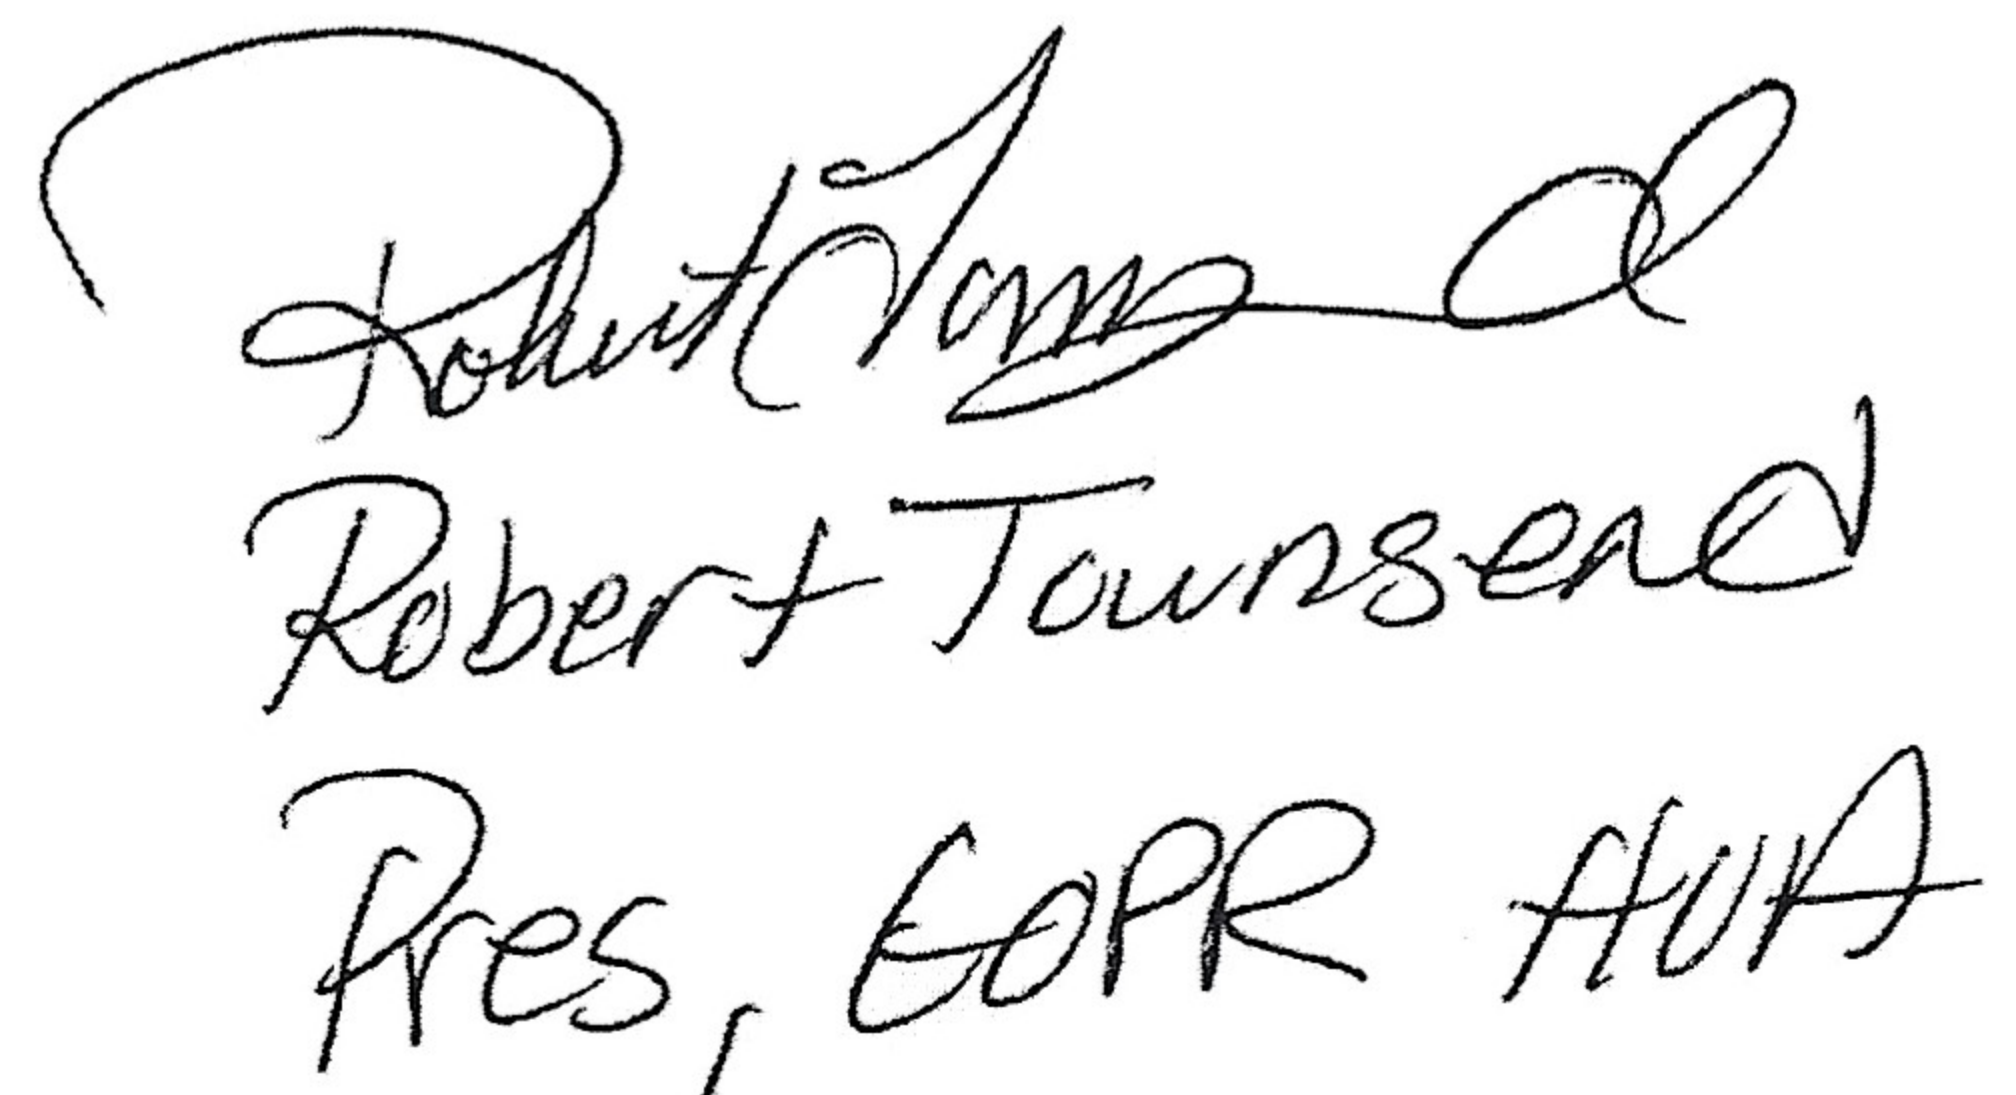 Robert Townsend
Robert Townsend
Pres, EOPR AVA